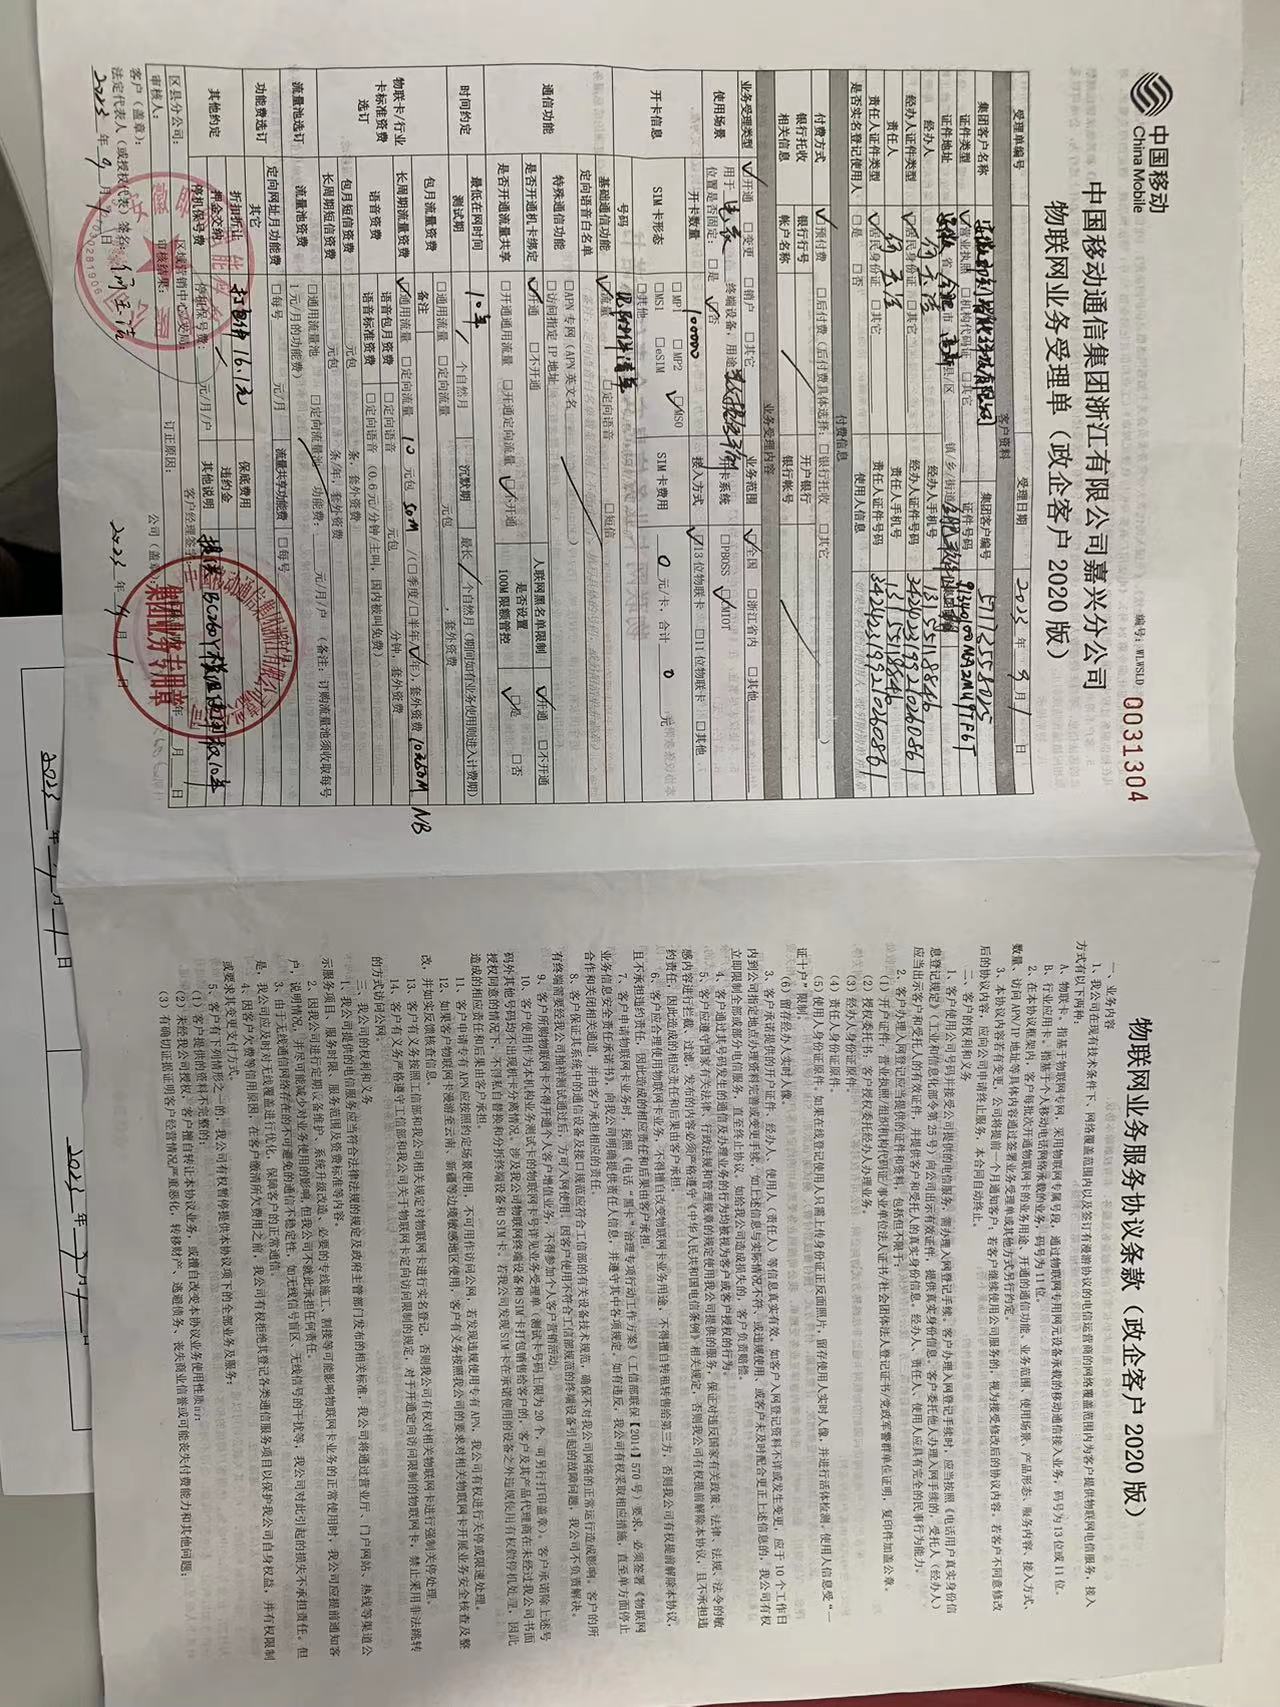 中国移动
China Mobile
编号：WLWSLD 0031304
中国移动通信集团浙江有限公司嘉兴分公司
物联网业务受理单（政企客户 2020 版）
受理单编号 受理日期 2023 年 9 月 1 日
客户资料
集团客户名称 安徽即刻智能科技有限公司 集团客户编号 57173558025
证件类型 ☑营业执照 □机构代码证 □其它 证件号码 91340100MA2MU9TF6T
证件地址 安徽 省 合肥 市 高新 县/区 镇/乡/街道 合肥软件园
经办人 何玉洁 经办人手机号 13155118846
经办人证件类型 ☑居民身份证 □其它 经办人证件号码 342423199210260861
责任人 何玉洁 责任人手机号 13155118846
责任人证件类型 ☑居民身份证 □其它 责任人证件号码 342423199210260861
是否实名登记使用人 □是 □否 使用人信息 如果实名登记使用人，或另附册单并盖章
付费信息
付费方式 ☑预付费 □后付费（后付费具体选择：□银行托收 □其它 ）
银行托收 银行行号 开户银行
相关信息 帐户名称 银行帐号
业务受理内容
业务受理类型 ☑开通 □变更 □销户 □其它 业务范围 ☑全国 □浙江省内 □其他
使用场景 用于 电表 终端设备，用途 开卡系统 □PBOSS ☑CMIOT
位置是否固定：□是 ☑否
开卡数量 100000 接入方式 ☑13 位物联卡 □11 位物联卡 □其他
开卡信息 SIM 卡形态 □MP1 □MP2 ☑MS0 SIM 卡费用 0 元/卡，合计 0 元
□MS1 □eSIM
□其他
号码 见附件清单
通信功能 基础通信功能 ☑流量 □定向语音 □短信
定向语音白名单 （备注：定向语音白名单数量原则上不超过 填写具体的号码，或另附清单并盖章）
特殊通信功能 □APN 专网（APN 英文名 ）
□访问指定 IP 地址
是否开通机卡绑定 ☑开通 □不开通 人联网黑名单限制 ☑开通 □不开通
是否开通流量共享 □开通通用流量 □开通定向流量 ☑不开通 是否设置 100M 限额管控 ☑是 □否
时间约定 最低在网时间 10年
测试期 个自然月 沉默期 最长 个自然月（期间如有业务使用则进入计费期）
物联卡/行业卡标准资费选订 包月流量资费 □通用流量 □定向流量 元包 ，套外资费
备注
长周期流量资费 ☑通用流量 □定向流量 10 元包 50M /（□季度/□半年/☑年），套外资费 10元50M NB
语音资费 语音包月资费 □定向语音 元包 分钟，套外资费
语音标准资费 □定向语音（0.6 元/分钟/主叫，国内被叫免费）
包月短信资费 元包 条，套外资费
长周期短信资费 元包 条/年，套外资费
流量池选订 流量池资费 □通用流量池 □定向流量池 功能费： 元/月/户 （备注：订购流量池须收取每号
1 元/月的功能费）
功能费选订 定向网址月功能费 □每号 元/月 流量共享功能费 □每号
其它
其他约定 折扣折让 打包价 16.1元 保底费用
押金交纳 违约金
停机保号费 停机保号费： 元/月/户 其他说明 提供 BC260Y 模组使用权10年
区县分公司： 区域营销中心/支局： 客户经理签字： 年 月 日
审核人： 审核结果： 订正原因：
客户（盖章）： 公司（盖章）
法定代表人（或授权代表）签名： 何玉洁
2023 年 9 月 1 日 2023 年 9 月 1 日
集团业务专用章
物联网业务服务协议条款（政企客户 2020 版）
一、业务内容
1、我公司在现有技术条件下、网络覆盖范围内以及签订有漫游协议的电信运营商的网络覆盖范围内为客户提供物联网电信服务，接入
方式有以下两种：
A、物联卡。指基于物联网专网，采用物联网专属号段，通过物联网专用网元设备承载的移动通信接入业务，码号为 13 位或 11 位。
B、行业应用卡。指基于个人移动电话网络承载的业务，码号为 11 位。
2、在本协议框架内，客户每批次开通物联网卡的业务用途、开通的通信功能、业务范围、使用场景、产品形态、服务内容、接入方式、
数量、访问 APN/IP 地址等具体内容通过签署业务受理单或其他方式另行约定。
3、本协议内容若有变更，公司将提前一个月通知客户；若客户继续使用公司服务的，视为接受修改后的协议内容。若客户不同意修改
后的协议内容，应向公司申请终止服务，本合同自动终止。
二、客户的权利和义务
1、客户使用公司号码并接受公司提供的电信服务，需办理入网登记手续。客户办理入网登记手续时，应当按照《电话用户真实身份信
息登记规定》（工业和信息化部令第 25 号）向公司出示有效证件，提供真实身份信息。客户委托他人办理入网手续的，受托人（经办人）
应当出示客户和受托人的有效证件，并提供客户和受托人的真实身份信息。经办人、责任人、使用人应具有完全的民事行为能力。
2、客户办理入网登记应当提供的证件和资料，包括但不限于：
（1）开户证件：营业执照/组织机构代码证/事业单位法人证书/社会团体法人登记证书/党政军警群单位证明，复印件加盖公章。
（2）授权委托书：客户授权委托经办人办理业务。
（3）经办人身份证原件。
（4）责任人身份证原件。
（5）使用人身份证原件。如果在线登记使用人只需上传身份证正反面照片，留存使用人实时人像，并进行活体检测。使用人信息受“一
证十户”限制。
（6）留存经办人实时人像。
3、客户承诺提供的开户证件、经办人、使用人（责任人）等信息真实有效。如客户入网登记资料不详或发生变更，应于 10 个工作日
内到公司指定地点办理资料完善或变更手续，如上述信息与实际情况不符、或违规使用、或客户未及时配合更正上述信息的，我公司有权
立即限制全部或部分电信服务，直至终止协议。如给我公司造成损失的，客户负责赔偿。
4、客户通过其号码发生的通信及办理业务的行为均被视为客户或客户授权的行为。
5、客户应遵守国家有关法律、行政法规和管理规章的规定使用我公司提供的服务，保证对违反国家有关政策、法律、法规、法令的敏
感内容进行拦截、过滤，发布的内容必须严格遵守《中华人民共和国电信条例》相关规定，否则我公司有权提前解除本协议，且不承担违
约责任，因此造成的相应责任和后果由客户承担。
6、客户应合理使用物联网卡业务，不得擅自改变物联网卡业务用途，不得擅自转租转售给第三方，否则我公司有权提前解除本协议，
且不承担违约责任，因此造成的相应责任和后果由客户承担。
7、客户申请物联网卡业务时，按照《电话“黑卡”治理专项行动工作方案》（工信部联保【2014】570 号）要求，必须签署《物联网
业务信息安全责任承诺书》，向我公司明确提供责任人信息，并遵守其中各项规定。如有违反，我公司有权采取相应措施，直至单方面停止
合作和关闭相关通道，并由客户承担相应的责任。
8、客户保证其系统中的通信设备及接口规范应符合工信部的有关设备技术规范，确保不对我公司网络的正常运行造成影响。客户的所
有终端需要经我公司抽样测试通过后，方可入网使用。因客户使用不符合工信部规范的终端设备引起的故障问题，我公司不负责解决。
9、客户所购物联网卡不得开通个人客户增值业务，不得参加个人客户营销活动。
10、客户使用作为本机构业务测试卡的物联网卡号详见业务受理单（测试卡号码上限为 20 个，可另行打印盖章）。客户承诺除上述号
码外其他号码均不出现机卡分离情况。涉及我公司物联网终端设备和 SIM 卡打包销售给客户的，客户及其产品代理商在未经过我公司书面
授权同意的情况下，不得私自替换和分拆终端设备和 SIM 卡。若我公司发现 SIM 卡在承诺使用的设备之外违规使用有权做停机处理，因此
造成的相应责任和后果由客户承担。
11、客户申请专有 APN 应按照约定场景使用，不可用作访问公网，若发现违规使用专有 APN，我公司有权进行关停或限速处理。
12、如果客户物联网卡漫游至云南、新疆等边境敏感地区使用，客户有义务按照我公司的要求对相关物联网卡开展业务安全核查及整
改，并如实反馈核查信息。
13、客户有义务按照工信部和我公司相关规定对物联网卡进行实名登记，否则我公司有权对相关物联网卡进行强制关停处理。
14、客户有义务严格遵守工信部和我公司关于物联网卡定向访问限制的规定，对于开通定向访问限制的物联网卡，禁止采用非法跳转
的方式访问公网。
三、我公司的权利和义务
1、我公司提供的电信服务应当符合法律法规的规定及政府主管部门发布的相关标准，我公司将通过营业厅、门户网站、热线等渠道公
示服务项目、服务时限、服务范围及资费标准等内容。
2、因我公司进行定期设备维护、系统升级改造、必要的专线施工、割接等可能影响物联网卡业务的正常使用时，我公司应提前通知客
户，说明情况，并尽可能减少对业务使用的影响，但我公司不就此承担任何责任。
3、由于无线通信网络存在的不可避免的通信不稳定性，如无线信号盲区、无线信号的干扰等，我公司对此引起的损失不承担责任。但
是，我公司应及时对无线覆盖进行优化，保障客户的正常通信。
4、因客户欠费等信用原因，在客户缴清所欠费用之前，我公司有权拒绝其登记各类通信服务项目以保护我公司自身权益，并有权限制
或要求其变更支付方式。
5、客户有下列情形之一的，我公司有权暂停提供本协议项下的全部业务及服务：
（1）客户提供的资料不完整的；
（2）未经我公司授权，客户擅自转让本协议业务，或擅自改变本协议业务使用性质的；
（3）有确切证据证明客户经营情况严重恶化，转移财产、逃避债务、丧失商业信誉或可能丧失付费能力和其他问题；
2023 年 9 月 1 日 2023 年 9 月 1 日